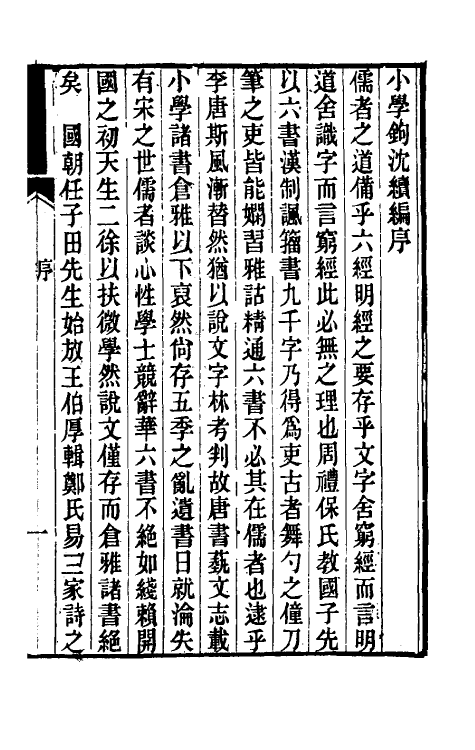 小學鉤沈續編序
儒者之道備乎六經明經之要存乎文字舍窮經而言明
道舍識字而言窮經此必無之理也周禮保氏教國子先
以六書漢制諷籀書九千字乃得爲吏古者舞勺之僮刀
筆之吏皆能嫺習雅詁精通六書不必其在儒者也逮乎
李唐斯風漸替然猶以說文字林考判故唐書蓺文志載
小學諸書倉雅以下裒然尙存五季之亂遺書日就淪失
有宋之世儒者談心性學士競辭華六書不絕如綫賴開
國之初天生二徐以扶微學然說文僅存而倉雅諸書絕
矣　國朝任子田先生始放王伯厚輯鄭氏易三家詩之
序
一